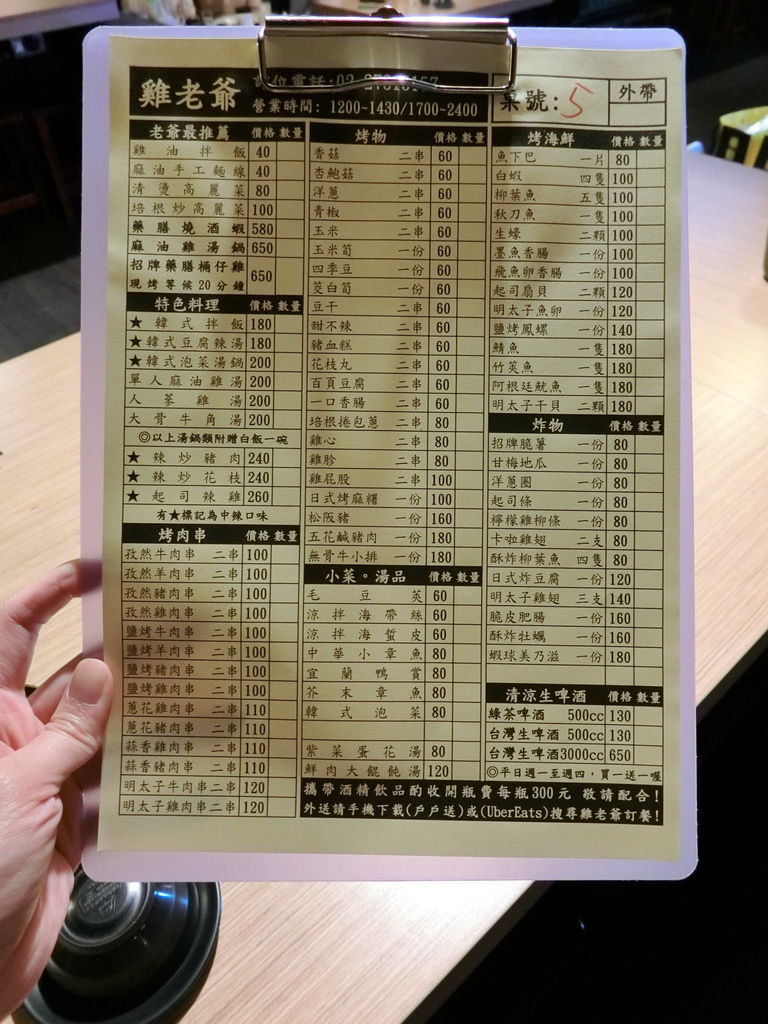 雞老爺
訂位電話:02-27
營業時間: 1200~1430/1700~2400
桌號: 5
外帶
老爺最推薦 價格 數量
雞油拌飯 40
麻油手工麵線 40
清燙高麗菜 80
培根炒高麗菜 100
藥膳燒酒蝦 580
麻油雞湯鍋 650
招牌藥膳桶仔雞 650
現烤等候20分鐘
特色料理 價格 數量
★韓式拌飯 180
★韓式豆腐辣湯 180
★韓式泡菜湯鍋 200
單人麻油雞湯 200
人蔘雞湯 200
大骨牛角湯 200
◎以上湯鍋類附贈白飯一碗
★辣炒豬肉 240
★辣炒花枝 240
★起司辣雞 260
有★標記為中辣口味
烤肉串 價格 數量
孜然牛肉串 二串 100
孜然羊肉串 二串 100
孜然豬肉串 二串 100
孜然雞肉串 二串 100
鹽烤牛肉串 二串 100
鹽烤羊肉串 二串 100
鹽烤豬肉串 二串 100
鹽烤雞肉串 二串 100
蔥花雞肉串 二串 110
蔥花豬肉串 二串 110
蒜香雞肉串 二串 110
蒜香豬肉串 二串 110
明太子牛肉串 二串 120
明太子雞肉串 二串 120
烤物 價格 數量
香菇 二串 60
杏鮑菇 二串 60
洋蔥 二串 60
青椒 二串 60
玉米 二串 60
玉米筍 一份 60
四季豆 一份 60
筊白筍 一份 60
豆干 二串 60
甜不辣 二串 60
豬血糕 二串 60
花枝丸 二串 60
百頁豆腐 二串 60
一口香腸 二串 60
培根捲包蔥 二串 80
雞心 二串 80
雞胗 二串 80
雞屁股 二串 100
日式烤麻糬 一份 100
松阪豬 一份 160
五花鹹豬肉 一份 180
無骨牛小排 一份 180
小菜。湯品 價格 數量
毛豆莢 60
涼拌海帶絲 60
涼拌海蜇皮 60
中華小章魚 80
宜蘭鴨賞 80
芥末章魚 80
韓式泡菜 80
紫菜蛋花湯 80
鮮肉大餛飩湯 120
烤海鮮 價格 數量
魚下巴 一片 80
白蝦 四隻 100
柳葉魚 五隻 100
秋刀魚 一隻 100
生蠔 二顆 100
墨魚香腸 一份 100
飛魚卵香腸 一份 100
起司扇貝 二顆 120
明太子魚卵 一份 120
鹽烤鳳螺 一份 140
鯖魚 一隻 180
竹筴魚 一隻 180
阿根廷魷魚 一隻 180
明太子干貝 二顆 180
炸物 價格 數量
招牌脆薯 一份 80
甘梅地瓜 一份 80
洋蔥圈 一份 80
起司條 一份 80
檸檬雞柳條 一份 80
卡啦雞翅 二支 80
酥炸柳葉魚 四隻 80
日式炸豆腐 一份 120
明太子雞翅 三支 140
脆皮肥腸 一份 160
酥炸牡蠣 一份 160
蝦球美乃滋 一份 180
清涼生啤酒 價格 數量
綠茶啤酒 500cc 130
台灣生啤酒 500cc 130
台灣生啤酒3000cc 650
◎平日週一至週四，買一送一喔
攜帶酒精飲品酌收開瓶費每瓶300元 敬請配合!
外送請手機下載(戶戶送)或(UberEats)搜尋雞老爺訂餐!